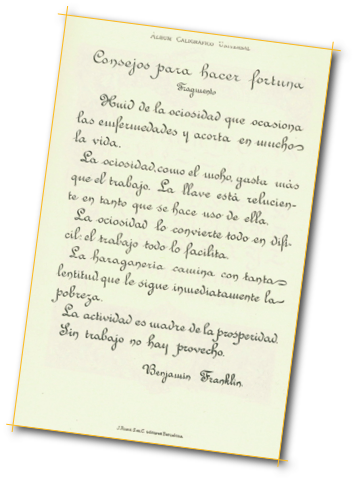 ALBUM CALIGRÁFICO UNIVERSAL
Consejos para hacer fortuna
Fragmento
Huid de la ociosidad que ocasiona
las enfermedades y acorta en mucho
la vida.
La ociosidad, como el moho, gasta más
que el trabajo. La llave está relucien-
te en tanto que se hace uso de ella.
La ociosidad lo convierte todo en difí-
cil: el trabajo todo lo facilita.
La haraganería camina con tanta
lentitud que le sigue inmediatamente la
pobreza.
La actividad es madre de la prosperidad.
Sin trabajo no hay provecho.
Benjamín Franklin.